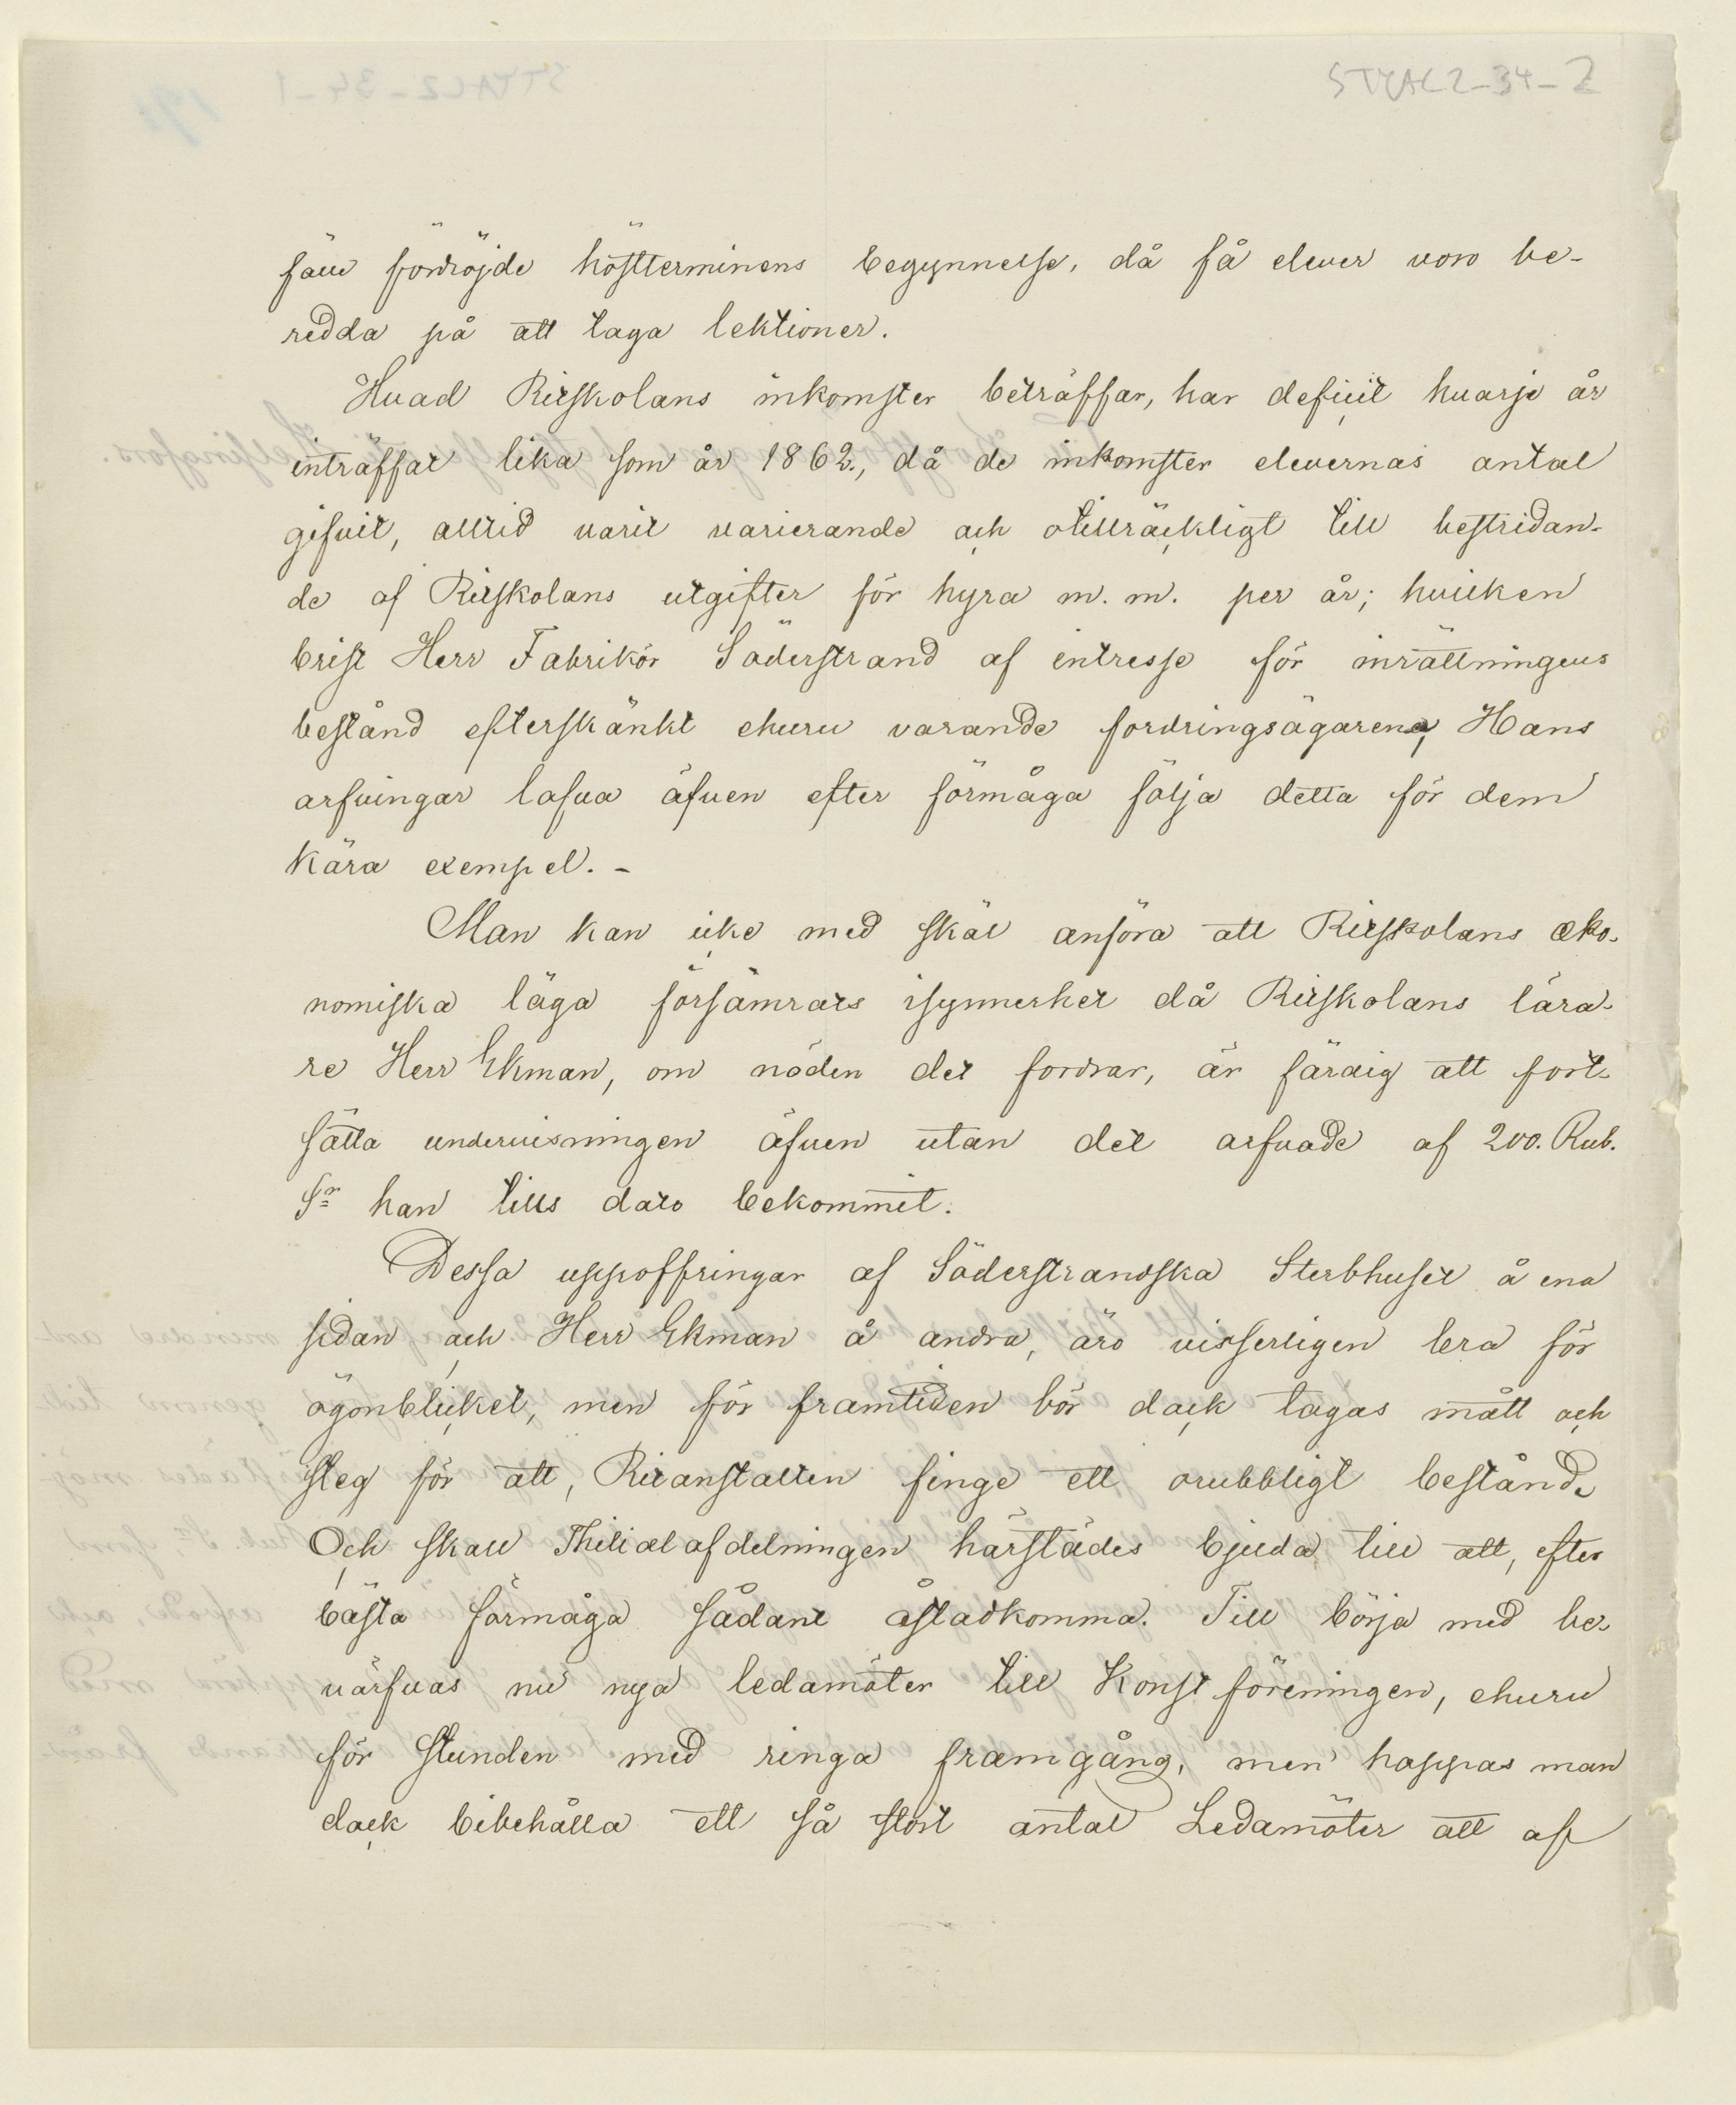 STYAC2-34-2
fall fördröjde höstterminens begynnelse, då få elever voro be-
redda på att taga lektioner.
Hvad Ritskolans inkomster beträffar, har deficit hvarje år
inträffat lika som år 1862., då de inkomster elevernas antal
gifvit, alltid varit varierande och otillräckligt till bestridan-
de af Ritskolans utgifter för hyra m. m. per år; hvilken
brist Herr Fabrikör Söderstrand af intresse för inrättningens
bestånd efterskänkt ehuru varande fordringsägarena, Hans
arfvingar lofva äfven efter förmåga följa detta för dem
kära exempel. -
Man kan icke med skäl anföra att Ritskolans œko-
nomiska läga försämrats isynnerhet då Ritskolans lära-
re Herr Ekman, om nöden det fordrar, är färdig att fort-
sätta undervisningen äfven utan det arfvode af 200. Rub.
Sr han tills dato bekommit.
Dessa uppoffringar af Söderstrandska Sterbhuset å ena
sidan och Herr Ekman å andra, äro visserligen bra för
ögonblicket, men för framtiden bör dock tagas mått och
steg för att, Ritanstalten finge ett orubbligt bestånd.
Och skall Thilialafdelningen härstädes bjuda till att, efter
bästa förmåga sådant åstadkomma. Till börja med be-
värfvas nu nya ledamöter till Konstföreningen, ehuru
för stunden med ringa framgång, men hoppas man
dock bibehålla ett så stort antal Ledamöter att af